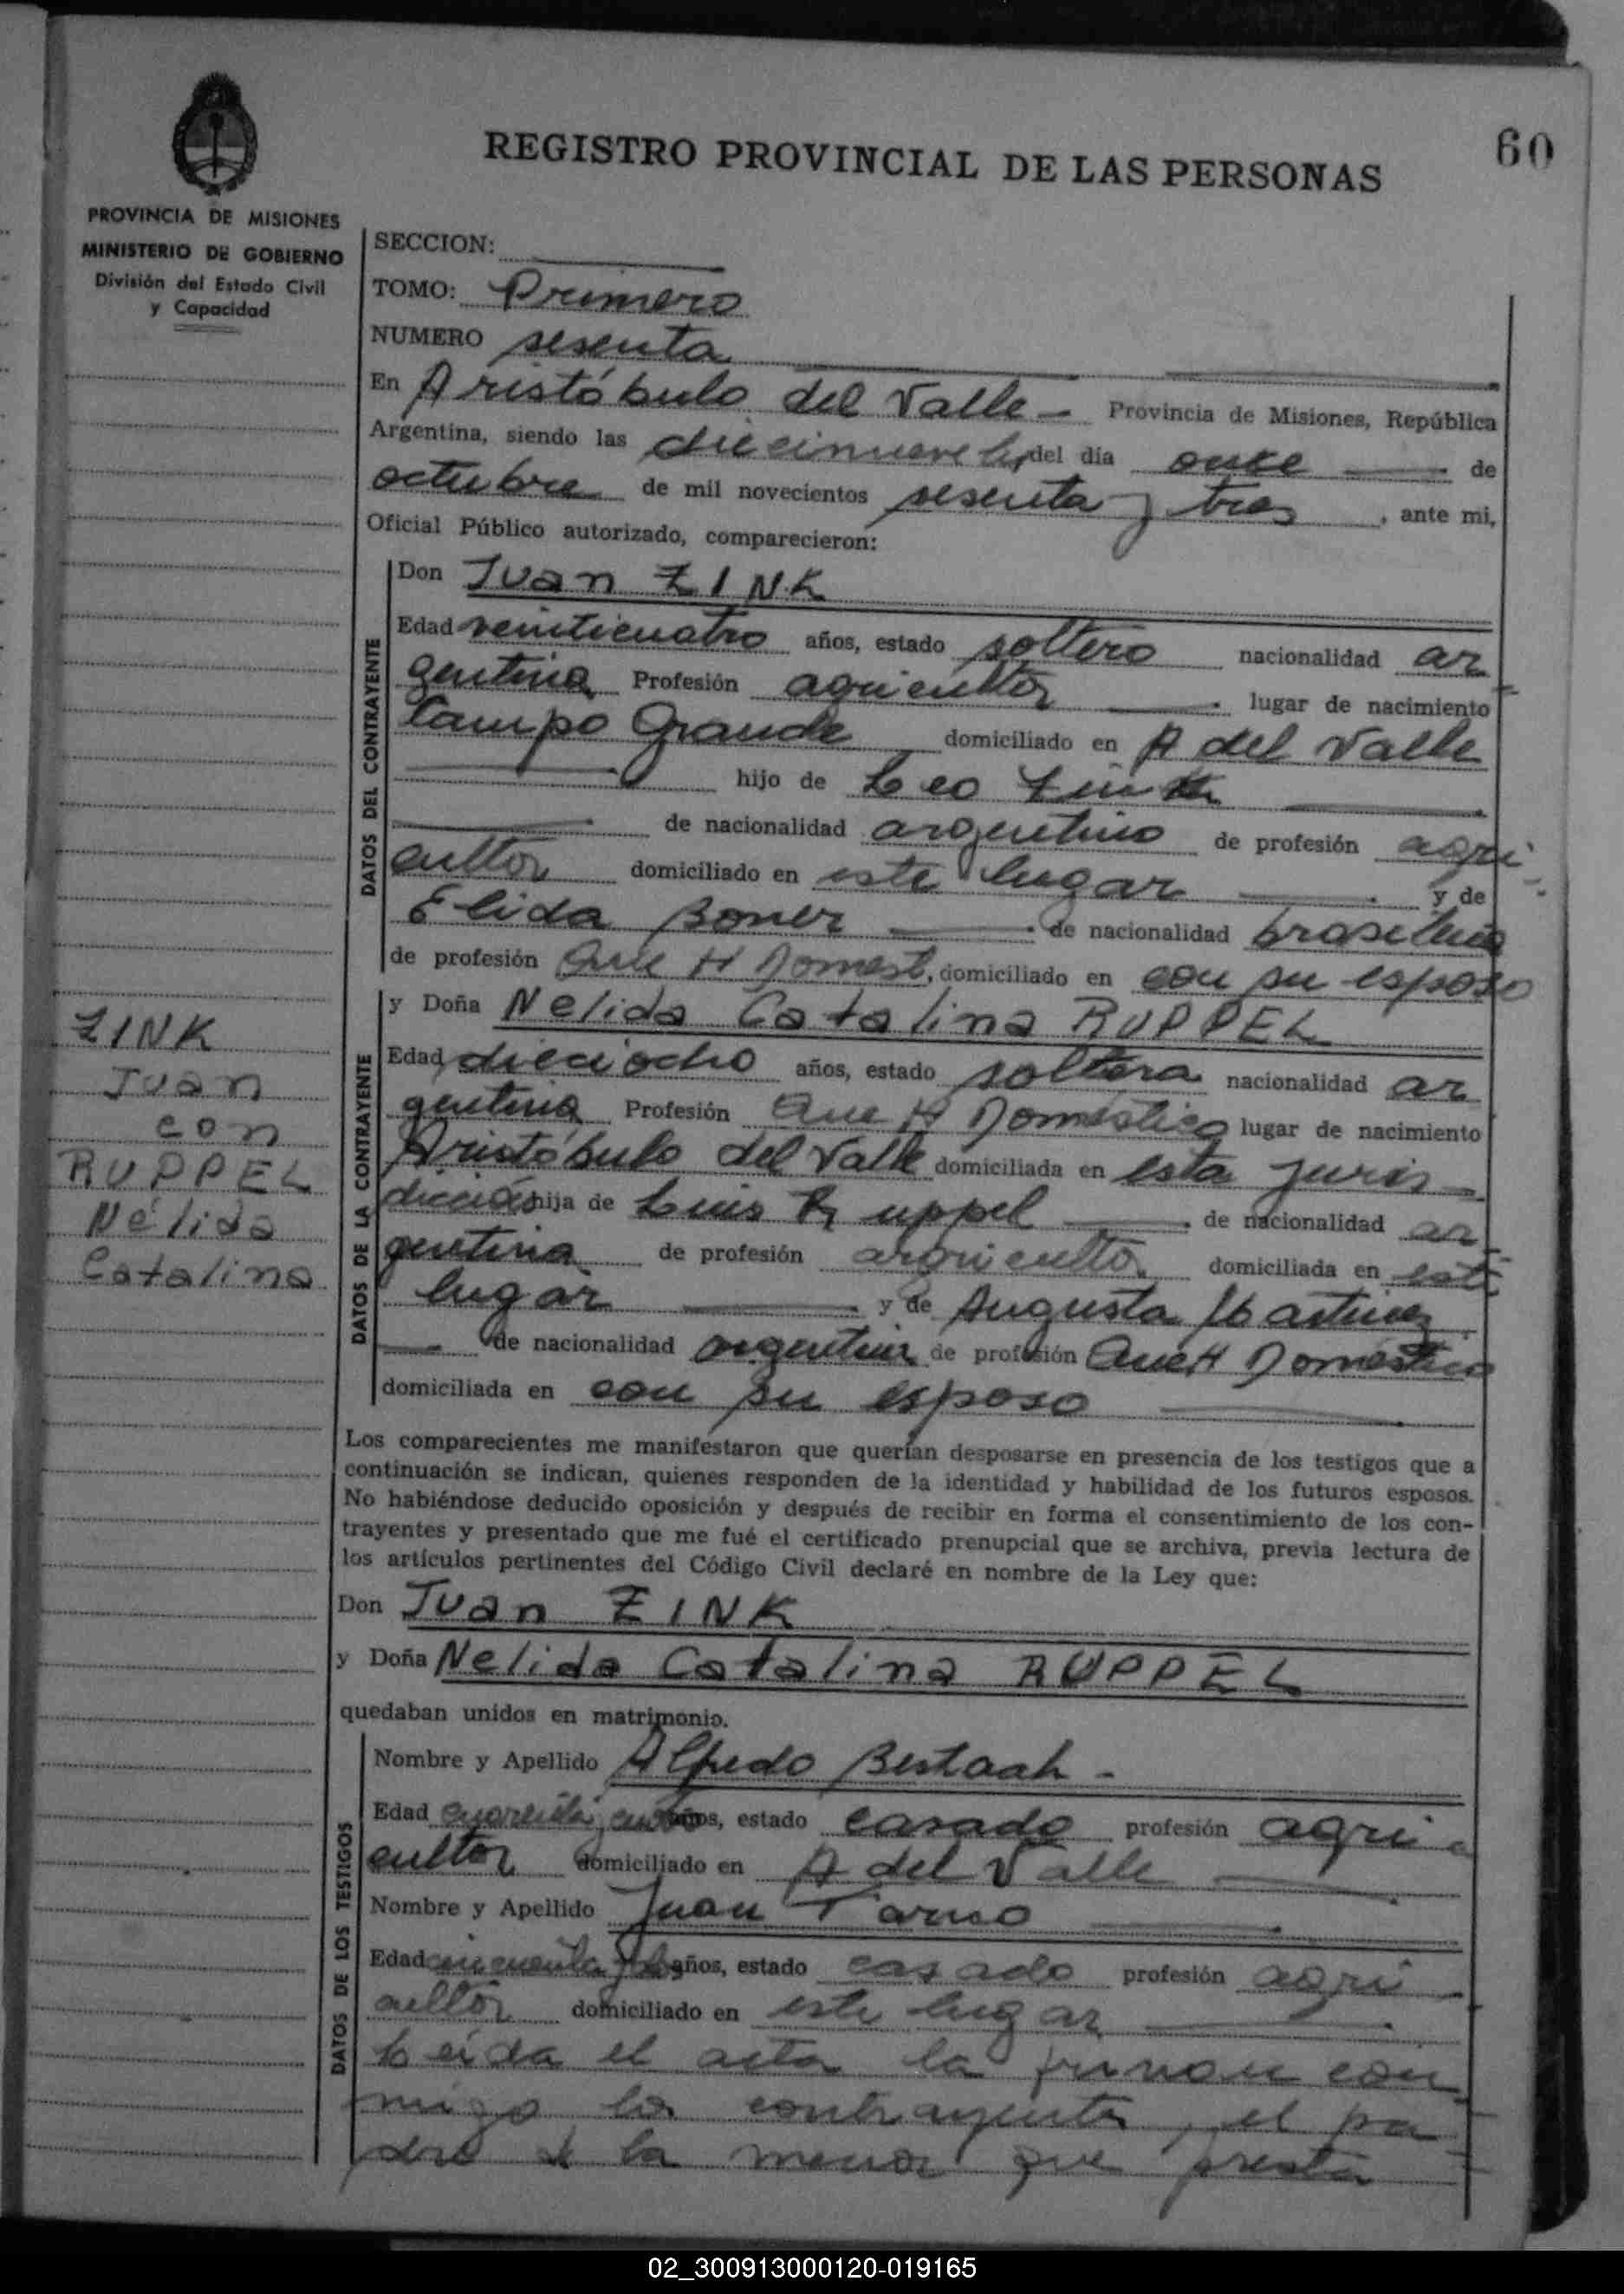 60
REGISTRO PROVINCIAL DE LAS PERSONAS
PROVINCIA DE MISIONES
MINISTERIO DE GOBIERNO
División del Estado Civil
y Capacidad
SECCION:
TOMO: Primero
NUMERO sesenta
En Aristóbulo del Valle - Provincia de Misiones, República
Argentina, siendo las diecinueve hs, del día once de
octubre de mil novecientos sesenta y tres, ante mi,
Oficial Público autorizado, comparecieron:
DATOS DEL CONTRAYENTE
Don Juan ZINK
Edad veinticuatro años, estado soltero nacionalidad ar
gentina Profesión agricultor lugar de nacimiento
Campo Grande domiciliado en A del Valle
hijo de Leo Zink
de nacionalidad argentino de profesión agri
cultor domiciliado en este lugar y de
Elida Boner de nacionalidad brasileña
de profesión Que H Domest, domiciliado en con su esposo
DATOS DE LA CONTRAYENTE
y Doña Nelida Catalina RUPPEL
Edad dieciocho años, estado soltera nacionalidad ar
gentina Profesión Que H Domestico lugar de nacimiento
Aristóbulo del Valle domiciliada en esta juris-
dicción hija de Luis Ruppel de nacionalidad ar
gentina de profesión agricultor domiciliada en este
lugar y de Augusta Martinez
de nacionalidad argentina de profesión Que H Domestico
domiciliada en con su esposo
ZINK
Juan
con
RUPPEL
Nélida
Catalina
Los comparecientes me manifestaron que querían desposarse en presencia de los testigos que a
continuación se indican, quienes responden de la identidad y habilidad de los futuros esposos.
No habiéndose deducido oposición y después de recibir en forma el consentimiento de los con-
trayentes y presentado que me fué el certificado prenupcial que se archiva, previa lectura de
los artículos pertinentes del Código Civil declaré en nombre de la Ley que:
Don Juan ZINK
y Doña Nelida Catalina RUPPEL
quedaban unidos en matrimonio.
DATOS DE LOS TESTIGOS
Nombre y Apellido Alfredo -
Edad cuarenta y años, estado casado profesión agri
cultor domiciliado en A del Valle
Nombre y Apellido Juan Tarno
Edad cincuenta y años, estado casado profesión agri
cultor domiciliado en este lugar
Leida el acta la firman con
migo los contrayentes, el pa
dre de la menor que presta
02_300913000120-019165